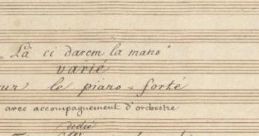 „Là ci darem la mano"
varié
le piano-forté
avec accompagnement d'orchestre
dedié